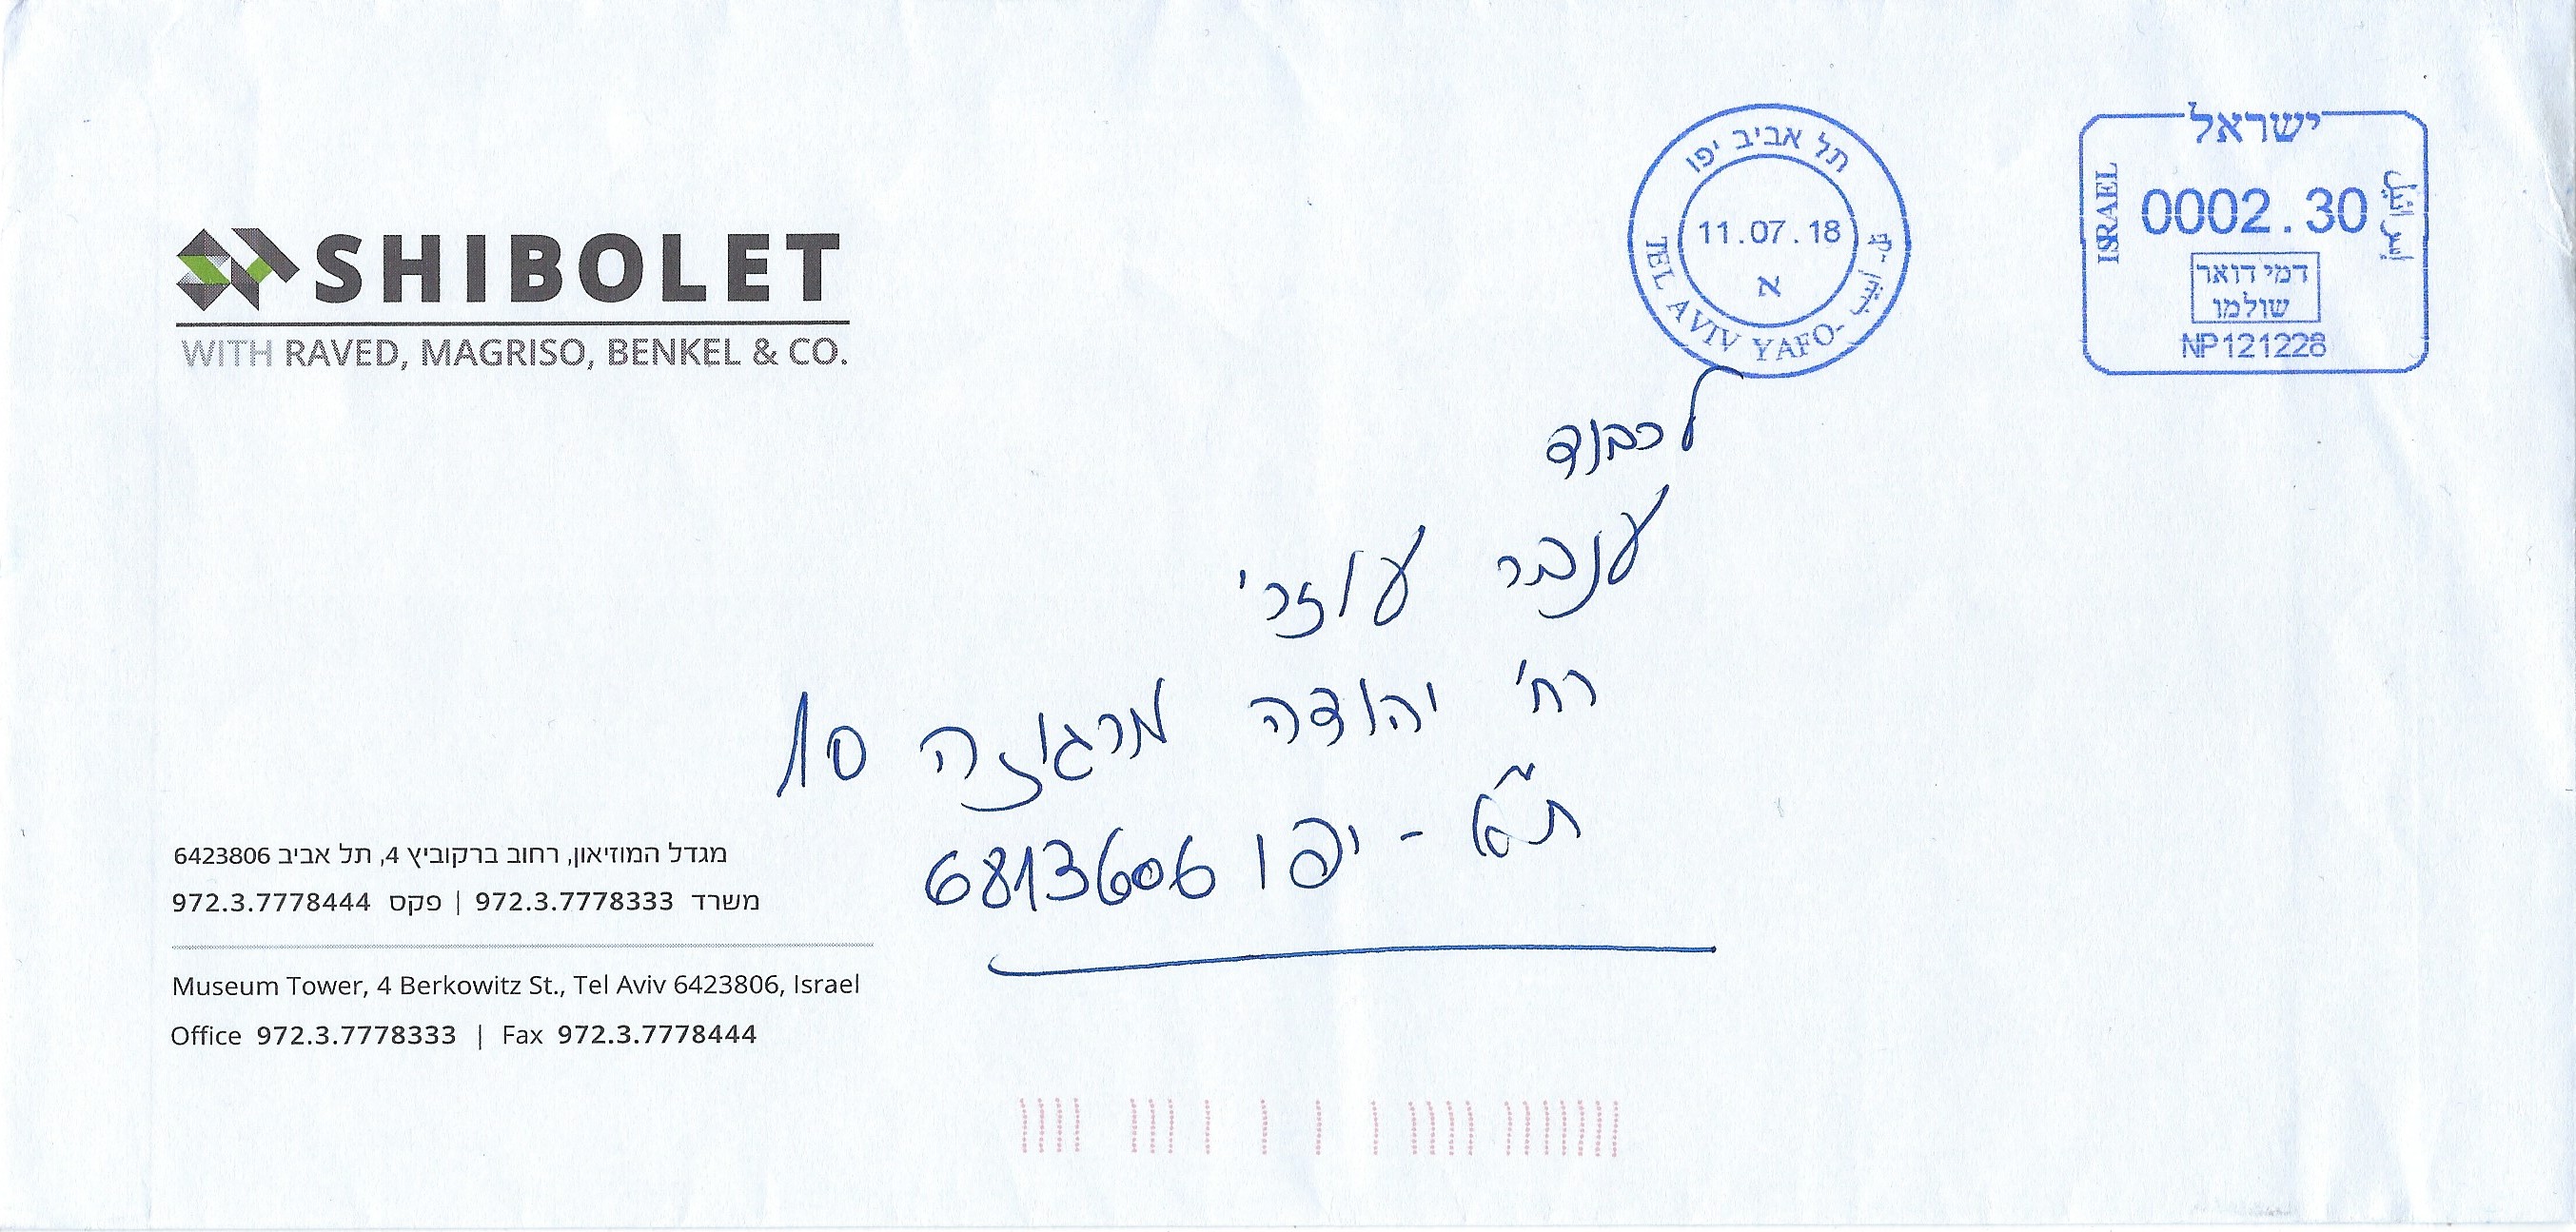 SHIBOLET
WITH RAVED, MAGRISO, BENKEL & CO.
תל אביב יפו
11.07.18
א
TEL AVIV YAFO-
ישראל
ISRAEL
0002.30
اسرائيل
דמי דואר
שולמו
NP121228
לכבוד
ענבר עוזרי
רח' יהודה מרגוזה 10
ת"א - יפו 6813606
מגדל המוזיאון, רחוב ברקוביץ 4, תל אביב 6423806
משרד 972.3.7778333 | פקס 972.3.7778444
Museum Tower, 4 Berkowitz St., Tel Aviv 6423806, Israel
Office 972.3.7778333 | Fax 972.3.7778444